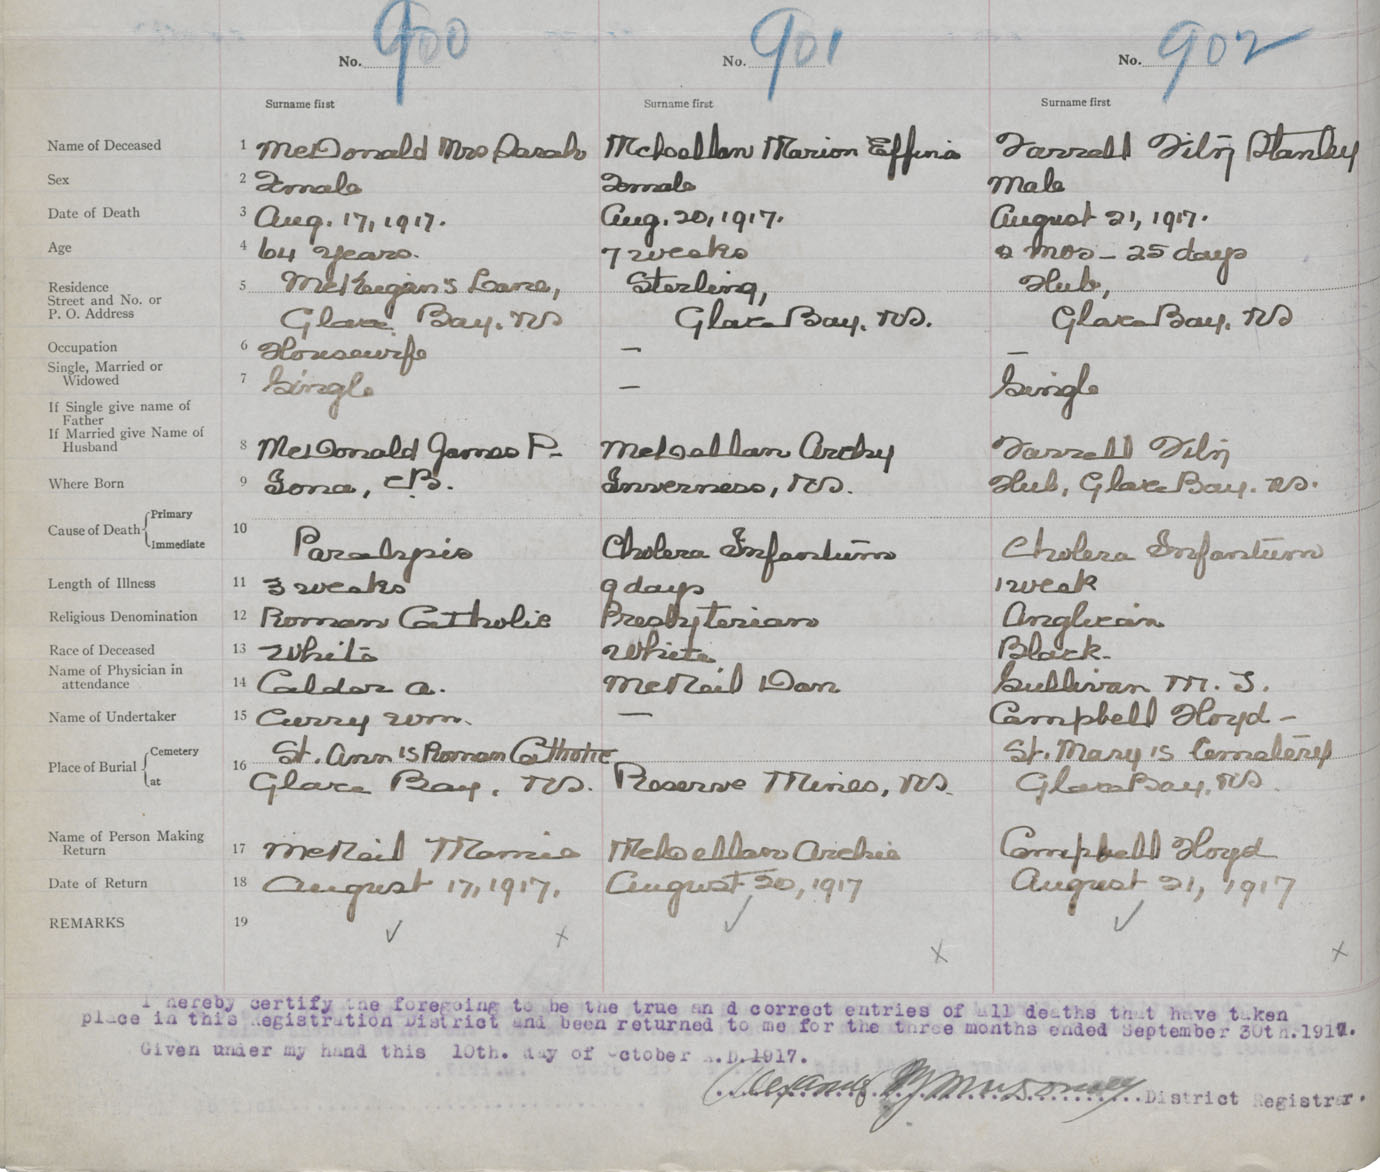 No. 900 No. 901 No. 902
Surname first Surname first Surname first
Name of Deceased 1 McDonald Mrs Sarah McLellan Marion Effina Farrell Stanley
Sex 2 Female Female Male
Date of Death 3 Aug. 17, 1917. Aug. 20, 1917. August 21, 1917.
Age 4 64 years. 7 weeks mos - 25 days
Residence 5 McKeigan's Lane, Sterling, Hub,
Street and No. or
P. O. Address Glace Bay. NS Glace Bay. NS. Glace Bay. NS
Occupation 6 Housewife — —
Single, Married or
Widowed 7 Single — Single
If Single give name of
Father
If Married give Name of
Husband 8 McDonald James P. McLellan Archy Farrell
Where Born 9 Iona, CB. Inverness, NS. Hub, Glace Bay. NS.
Primary
Cause of Death 10
Immediate Paralysis Cholera Infantum Cholera Infantum
Length of Illness 11 3 weeks 9 days 1 week
Religious Denomination 12 Roman Catholic Presbyterian Anglican
Race of Deceased 13 White White Black.
Name of Physician in
attendance 14 Calder A. McNeil Dan Sullivan M. S.
Name of Undertaker 15 Curry Wm. — Campbell Floyd -
Cemetery St. Ann's Roman Catholic St. Mary's Cemetery
Place of Burial 16
at Glace Bay, NS. Reserve Mines, NS. Glace Bay, NS
Name of Person Making
Return 17 McNeil Mamie McLellan Archie Campbell Floyd
Date of Return 18 August 17, 1917. August 20, 1917 August 21, 1917
REMARKS 19
I hereby certify the foregoing to be the true an d correct entries of all deaths that have taken
place in this Registration District and been returned to me for the three months ended September 30th.1917.
Given under my hand this 10th. day of October A.D.1917.
District Registrar.